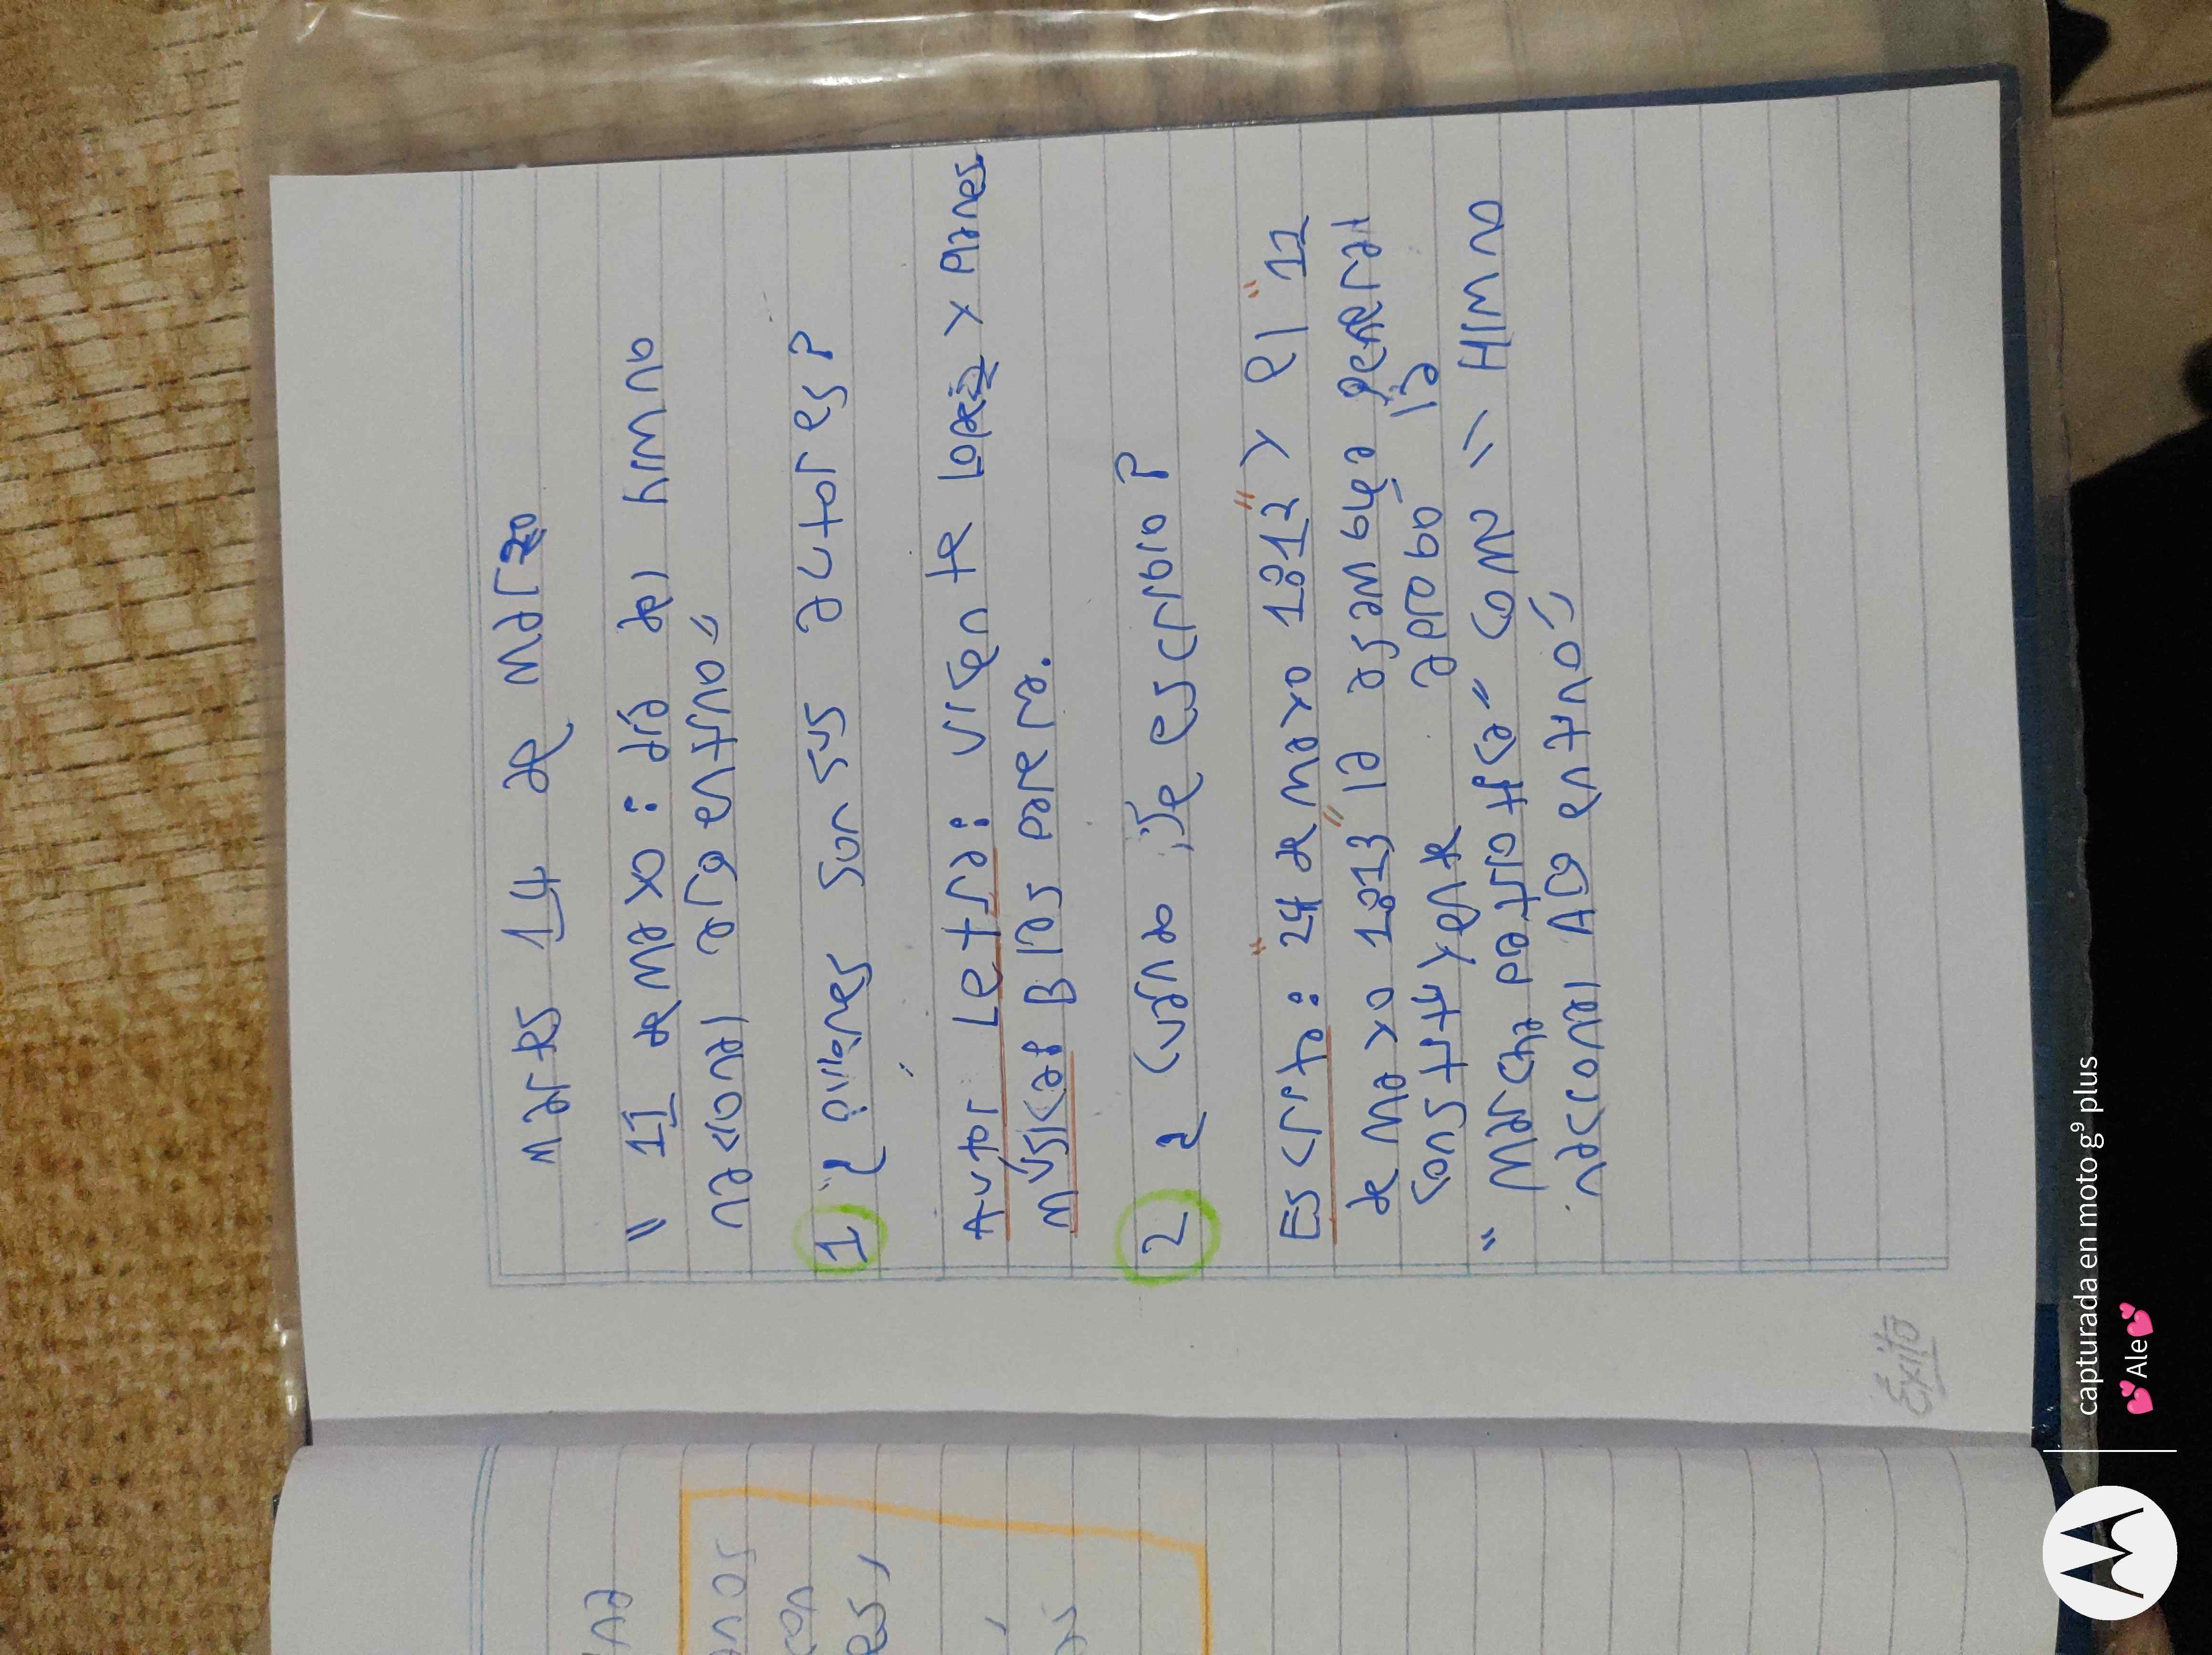 martes 14 de marzo
" 11 de mayo: día del himno
nacional argentino"
1 ¿Quiénes son sus autores?
Autor Letra: Vicente López y planes
música: Blas parera.
2 ¿Cuándo se escribio?
Escrita: "24 de mayo 1812" y el "11
de mayo 1813" la asamblea general
constituyente adobo la
"Marcha patriótica" como " Himno
nacional Argentino"
Éxito
ina
anos
con
es,
os
capturada en moto g⁹ plus
💕Ale💕